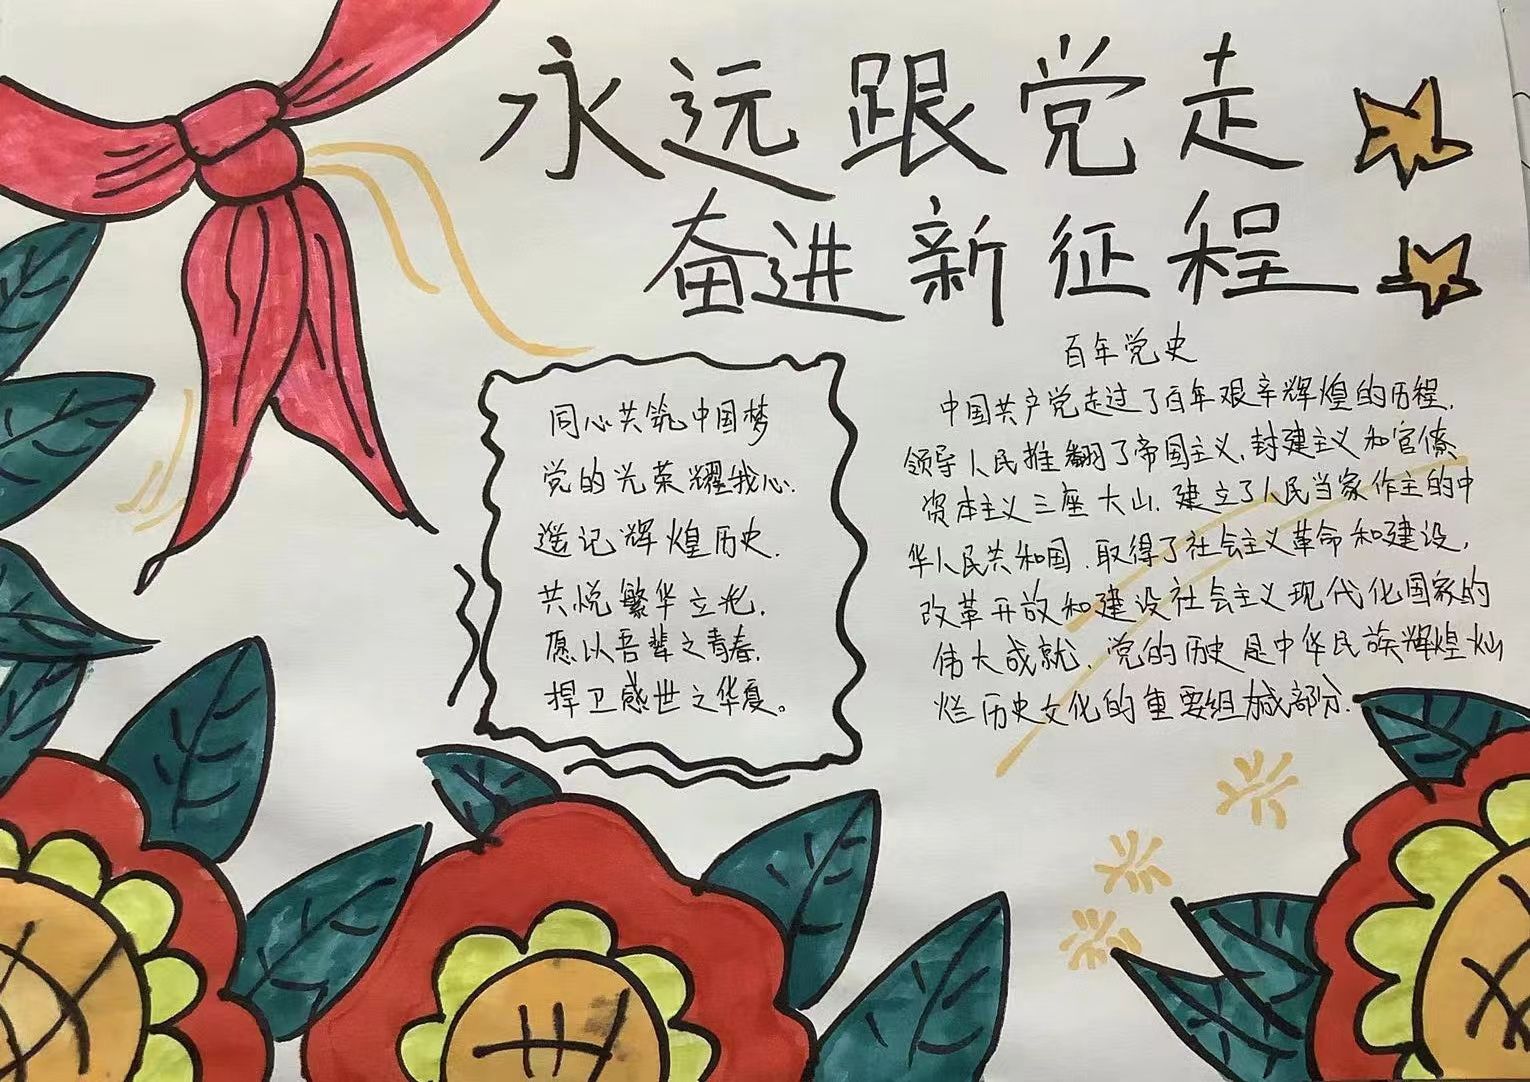 永远跟党走
奋进新征程
同心共筑中国梦
党的光荣耀我心.
遥记辉煌历史.
共悦繁华立光.
愿以吾辈之青春.
捍卫盛世之华夏。
百年党史
中国共产党走过了百年艰辛辉煌的历程.
领导人民推翻了帝国主义.封建主义和官僚
资本主义三座大山.建立了人民当家作主的中
华人民共和国.取得了社会主义革命和建设.
改革开放和建设社会主义现代化国家的
伟大成就.党的历史是中华民族辉煌灿
烂历史文化的重要组成部分.